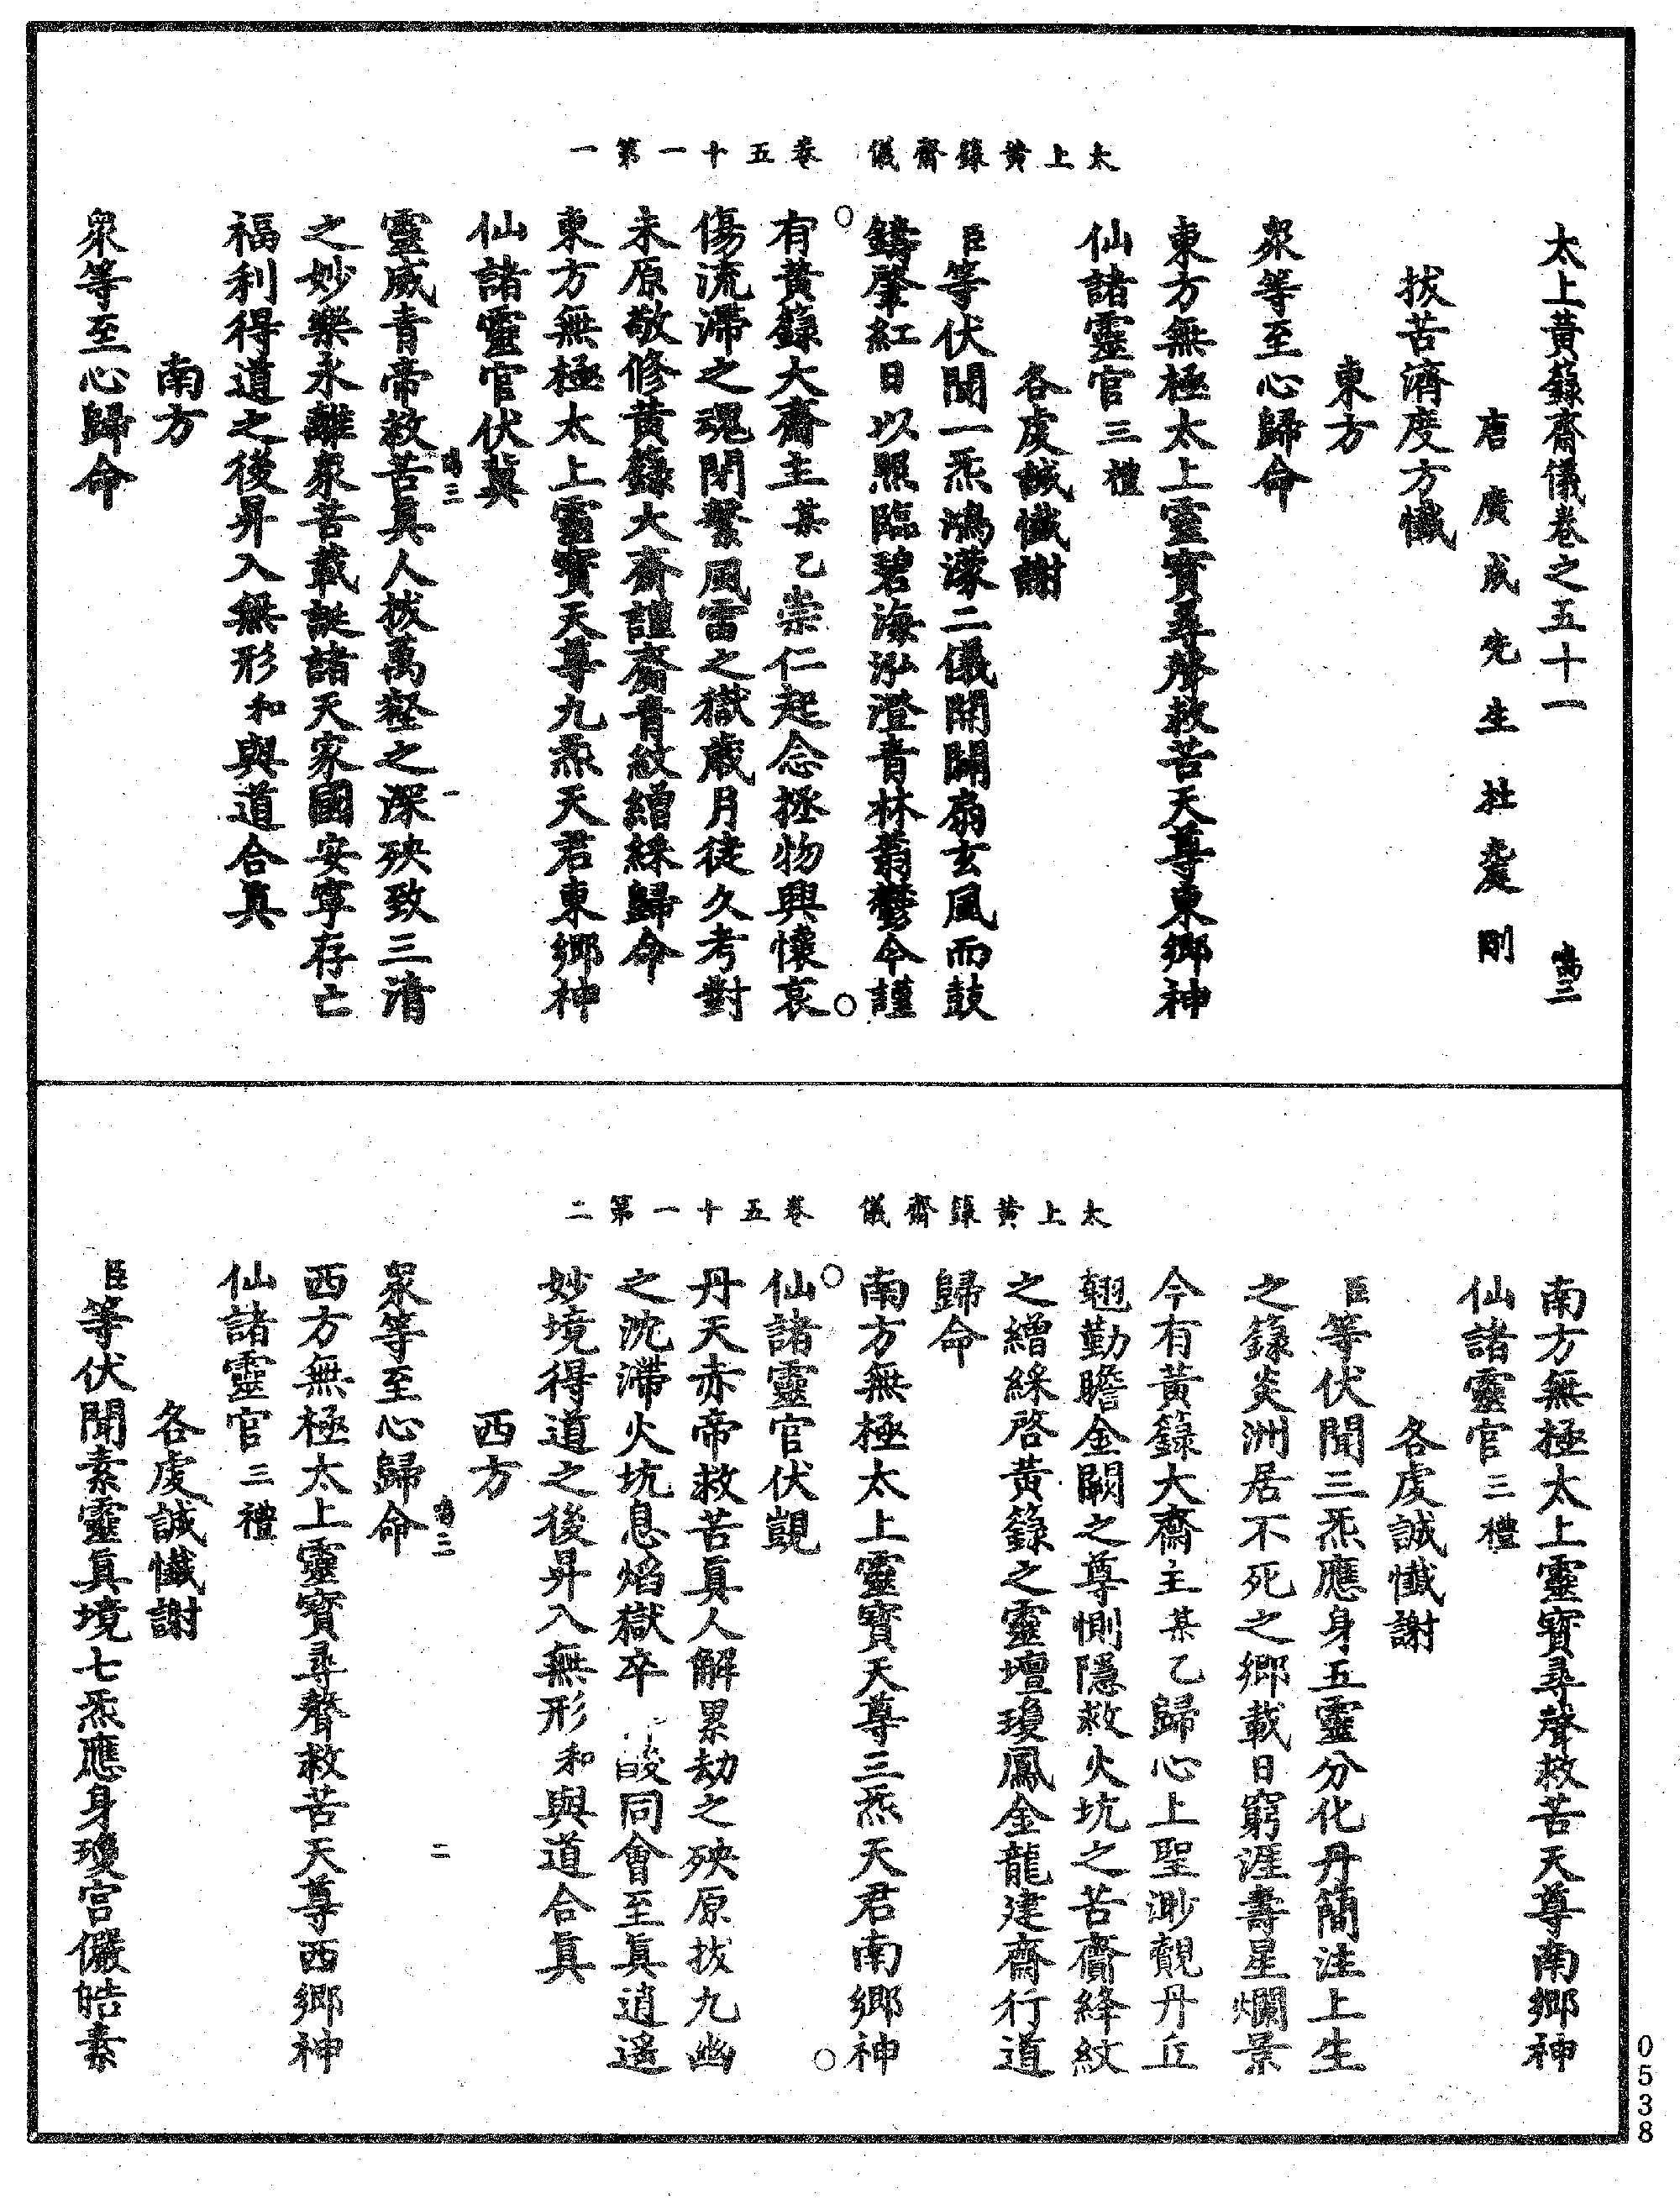 太上黃籙齋儀 卷五十一第一
太上黃籙齋儀卷之五十一 鳴三
唐廣成先生杜處剛
拔苦濟度方懺
東方
衆等至心歸命
東方無極太上靈寶尋聲救苦天尊東鄉神
仙諸靈官三禮
各虔誠懺謝
臣等伏聞一炁鴻濛二儀開闢扇玄風而鼓
鑄肇紅日以照臨碧海泓澄青林蓊鬱今謹
有黃籙大齋主某乙崇仁起念拯物興懷哀
傷流滯之魂閉繫風雷之獄歲月徒久考對
未原敬修黃籙大齋謹齎青紋繒綵歸命
東方無極太上靈寶天尊九炁天君東鄉神
仙諸靈官伏冀
鳴三 一
靈威青帝救苦真人拔萬壑之深殃致三清
之妙樂永離衆苦載誕諸天家國安寧存亡
福利得道之後昇入無形和與道合真
南方
衆等至心歸命
太上黃籙齋儀 卷五十一第二
南方無極太上靈寶尋聲救苦天尊南鄉神
仙諸靈官三禮
各虔誠懺謝
臣等伏聞三炁應身五靈分化丹簡注上生
之錄炎洲居不死之鄉載日窮涯壽星爛景
今有黃籙大齋主某乙歸心上聖渺覿丹丘
翹勤瞻金闕之尊惻隱救火坑之苦齎絳紋
之繒綵啓黃籙之靈壇瓊鳳金龍建齋行道
歸命
南方無極太上靈寶天尊三炁天君南鄉神
仙諸靈官伏覬
丹天赤帝救苦真人解累劫之殃原拔九幽
之沈滯火坑息焰獄卒 酸同會至真逍遥
妙境得道之後昇入無形和與道合真
西方
鳴三 二
衆等至心歸命
西方無極太上靈寶尋聲救苦天尊西鄉神
仙諸靈官三禮
各虔誠懺謝
臣等伏聞素靈真境七炁應身瓊宮儼皓素
0538